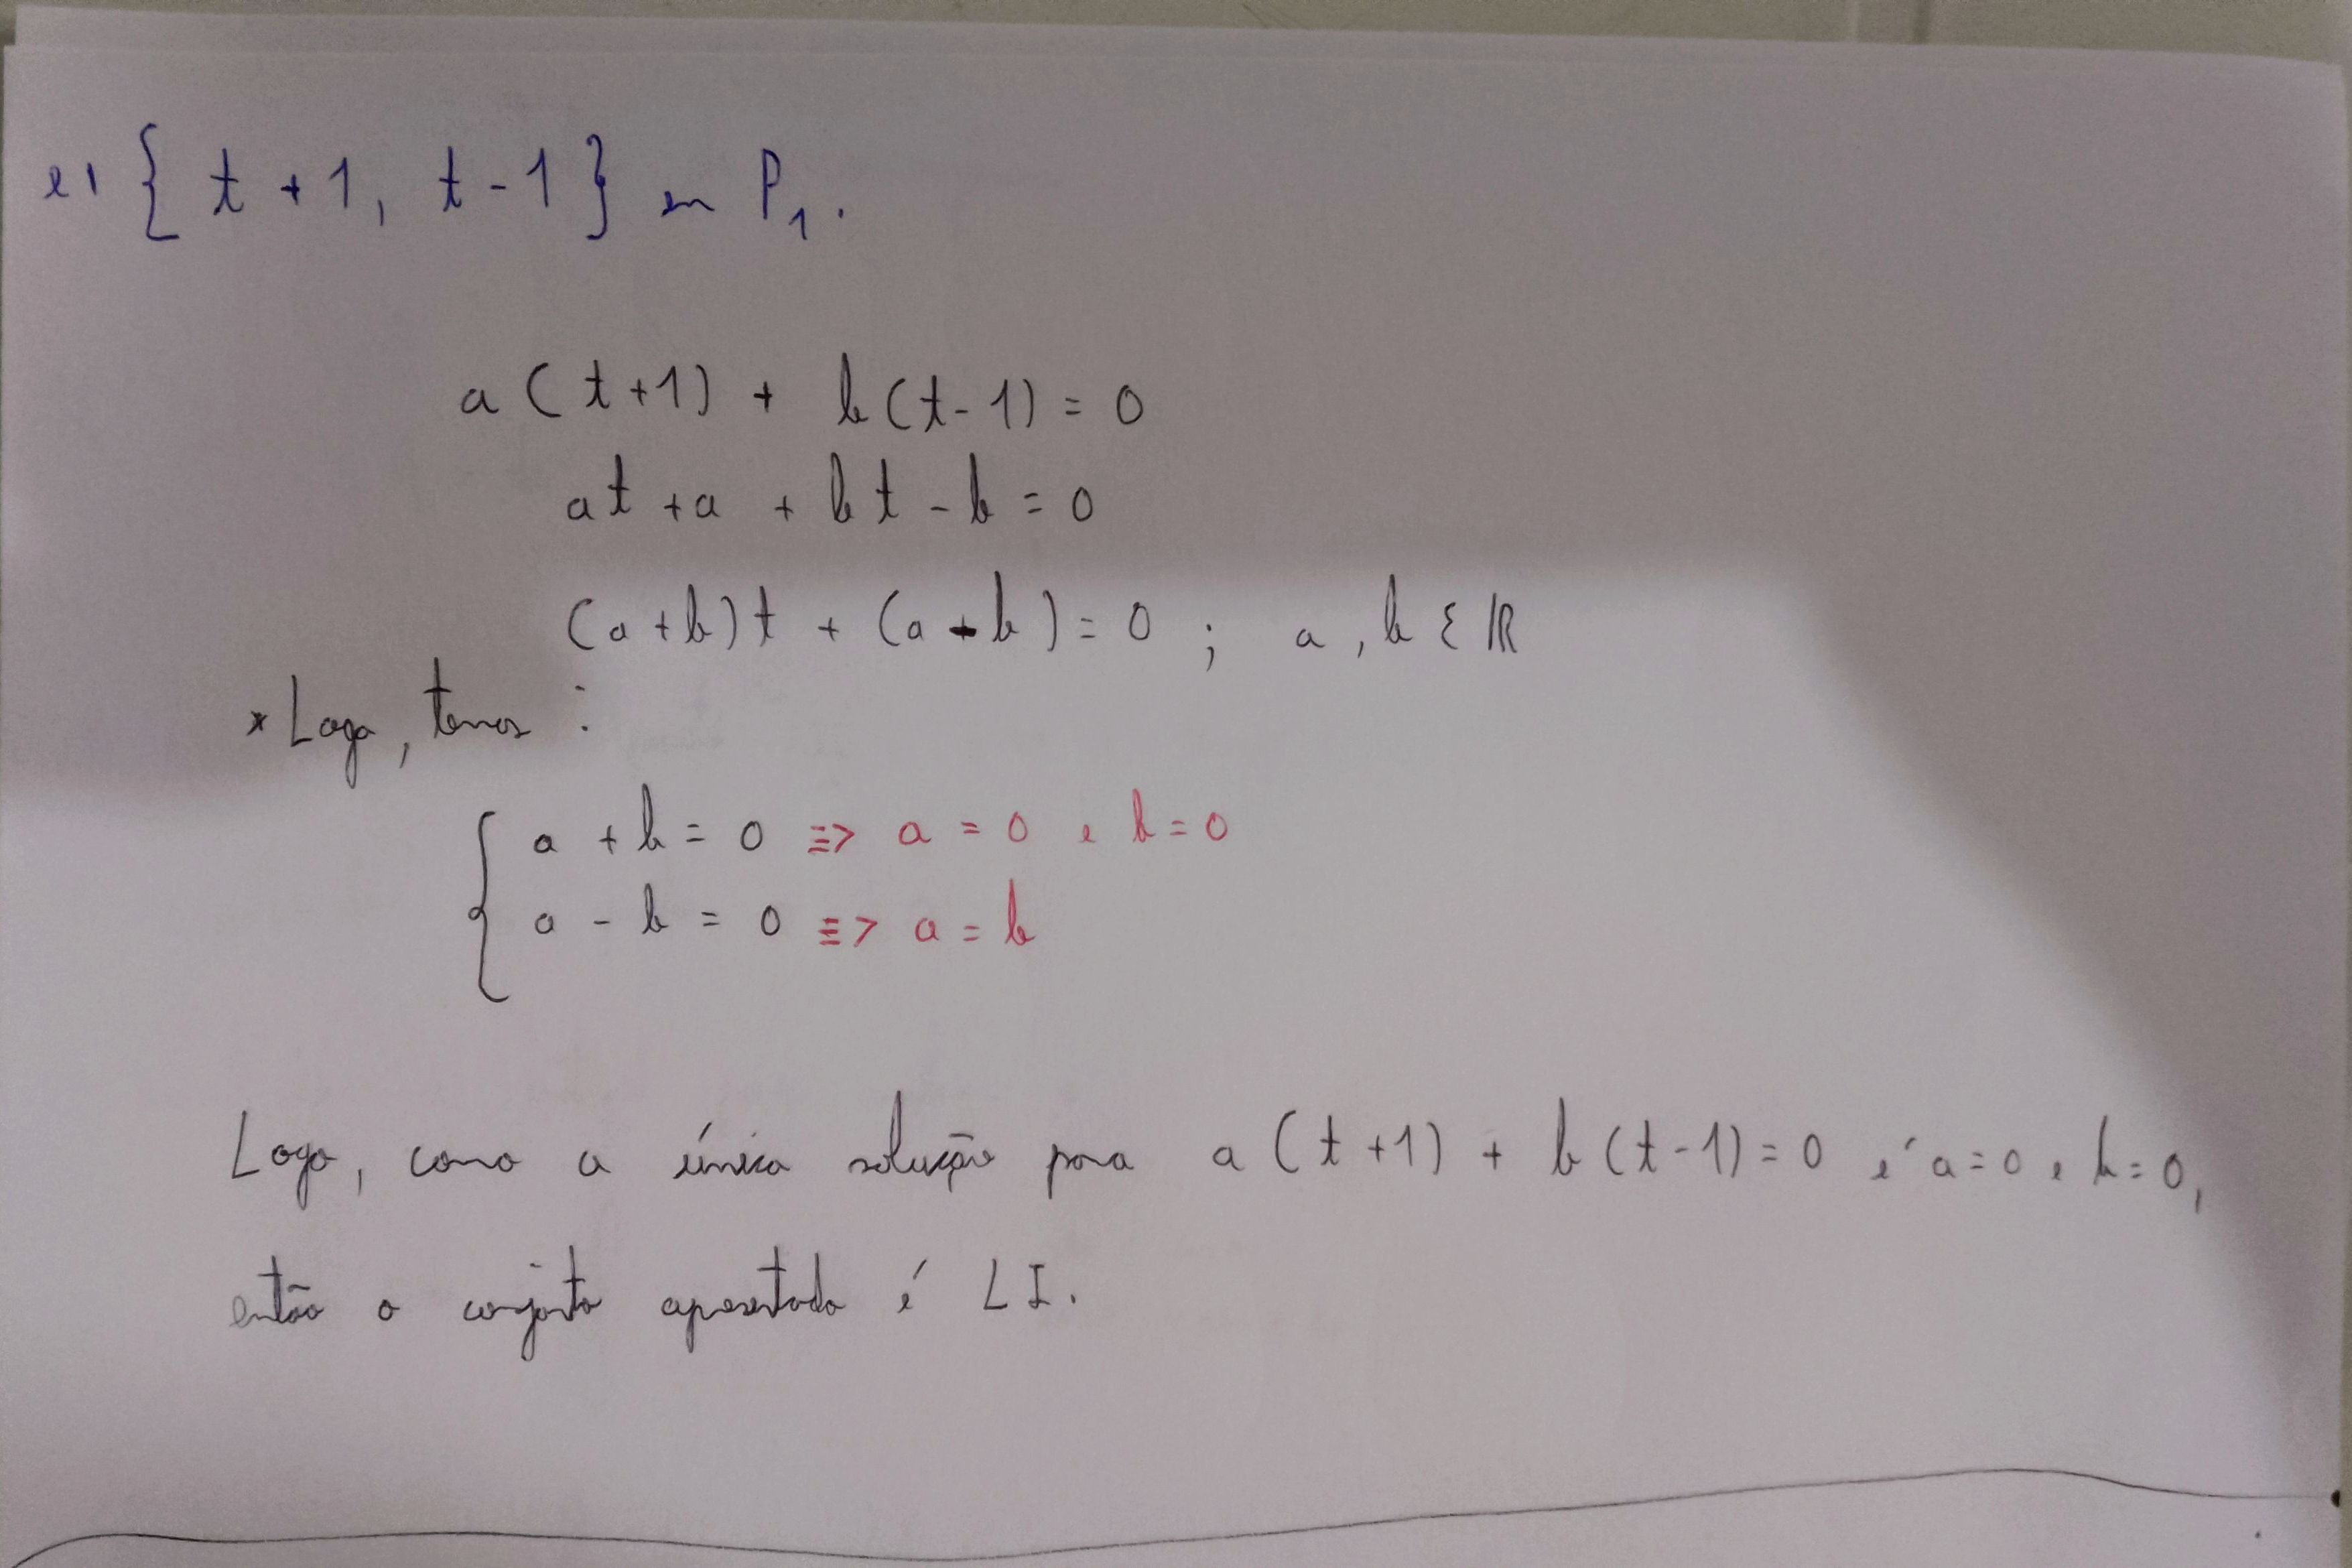 e) { t + 1, t - 1 } em P₁.
a (t+1) + b (t-1) = 0
at + a + bt - b = 0
(a+b)t + (a - b) = 0 ; a, b ∈ ℝ
* Logo, temos :
{ a + b = 0 => a = 0 e b = 0
a - b = 0 => a = b
Logo, como a única solução para a (t+1) + b (t-1) = 0 é a = 0 e b = 0,
então o conjunto apresentado é LI.